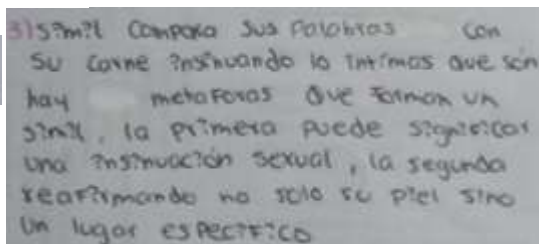 3) Simil Compara sus Palabras con
su carne insinuando lo intimas que son
hay metaforas que forman un
simil, la primera puede significar
una insinuación sexual, la segunda
reafirmando no solo su piel sino
un lugar especifico